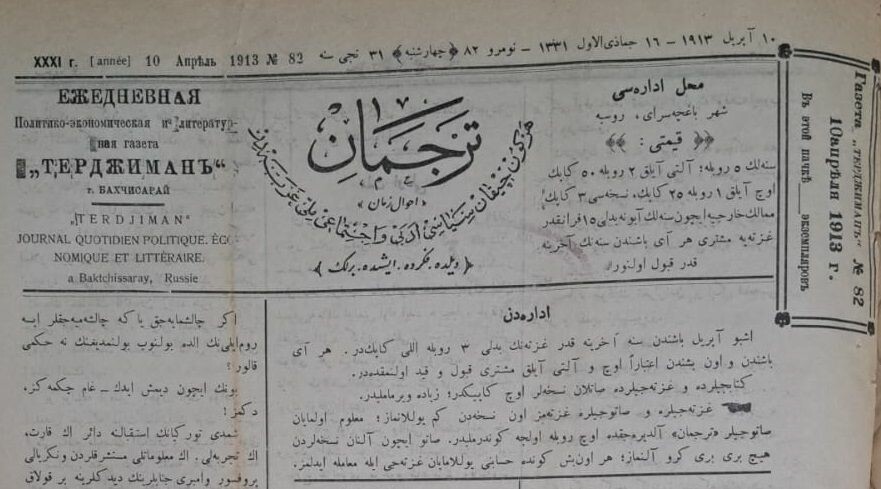 XXXI г. [année] 10 Апрѣль 1913 № 82
۱۰ آپریل ۱۹۱۳ – ۱٦ جماذی‌الاول ۱۳۳۱ – نومرو ۸۲ ﴿چهارشنبه﴾ ۳۱ نجی سنه
ЕЖЕДНЕВНАЯ
Политико-экономическая и литератур-
ная газета
„ТЕРДЖИМАНЪ“
г. БАХЧИСАРАЙ
„TERDJIMAN“
JOURNAL QUOTIDIEN POLITIQUE. ÉCO
NOMIQUE ET LITTÉRAIRE.
a Baktchissaray, Russie
ترجمان
« احوال زمان »
هر كون چیقان سیاسی ادبی و اجتماعی ملی غزته‌در
﴿ دیلده، فكرده، ایشده برلك ﴾
محل اداره‌سی
شهر باغچه‌سرای، روسیه
﴿﴿ قیمتی : ﴾﴾
سنه‌لك ٥ روبله؛ آلتی آیلق ۲ روبله ٥۰ كاپك
اوچ آیلق ۱ روبله ۲٥ كاپك، نسخه‌سی ۳ كاپك؛
ممالك خارجیه ایچون سنه‌لك آبونه بدلی ۱٥ فرانقدر
غزته‌یه مشتری هر آی باشندن سنه‌ نك آخرینه
قدر قبول اولنور
Газета „ТЕРДЖИМАНЪ“ № 82
10 апрѣля 1913 г.
Въ этой пачкѣ экземпляровъ
اداره‌دن
اشبو آپریل باشندن سنه آخرینه قدر غزته‌نك بدلی ۳ روبله اللی كاپك‌در. هر آی
باشندن و اون بشندن اعتباراً اوچ و آلتی آیلق مشتری قبول و قید اولنمقده‌در.
كتابجیلرده و غزته‌جیلرده صاتلان نسخه‌لر اوچ كاپیكدر؛ زیاده ویرماملیدر.
غزته‌جیلره و صاتوجیلره غزته‌مز اون نسخه‌دن كم یوللانماز؛ معلوم اولمایان
صاتوجیلر «ترجمان» آلدیره‌جقده اوچ روبله اولجه كوندرملیدر. صاتو ایچون آلنان نسخه‌لردن
هیچ بری بری كرو آلنماز؛ هر اون‌بش كونده حسابنی یوللامایان غزته‌جی ایله معامله ایدلمز.
اكر چالشمایه‌جق یا كه چالشه‌میه‌جقلر ایسه
روم‌ایلی‌نك الده بولنوب بولنمدیغنك نه حكمی
قالور؟
بونك ایچون دیمش ایدك — غام چكمه‌كز.
دكمز!
شمدی توركیانك استقبالنه دائر اك قارت،
اك تجربه‌لی، اك معلوماتلی مستشرقلردن ونكریالی
پروفسور وامبری جنابلرینك دیدكلرینه بر قولاق